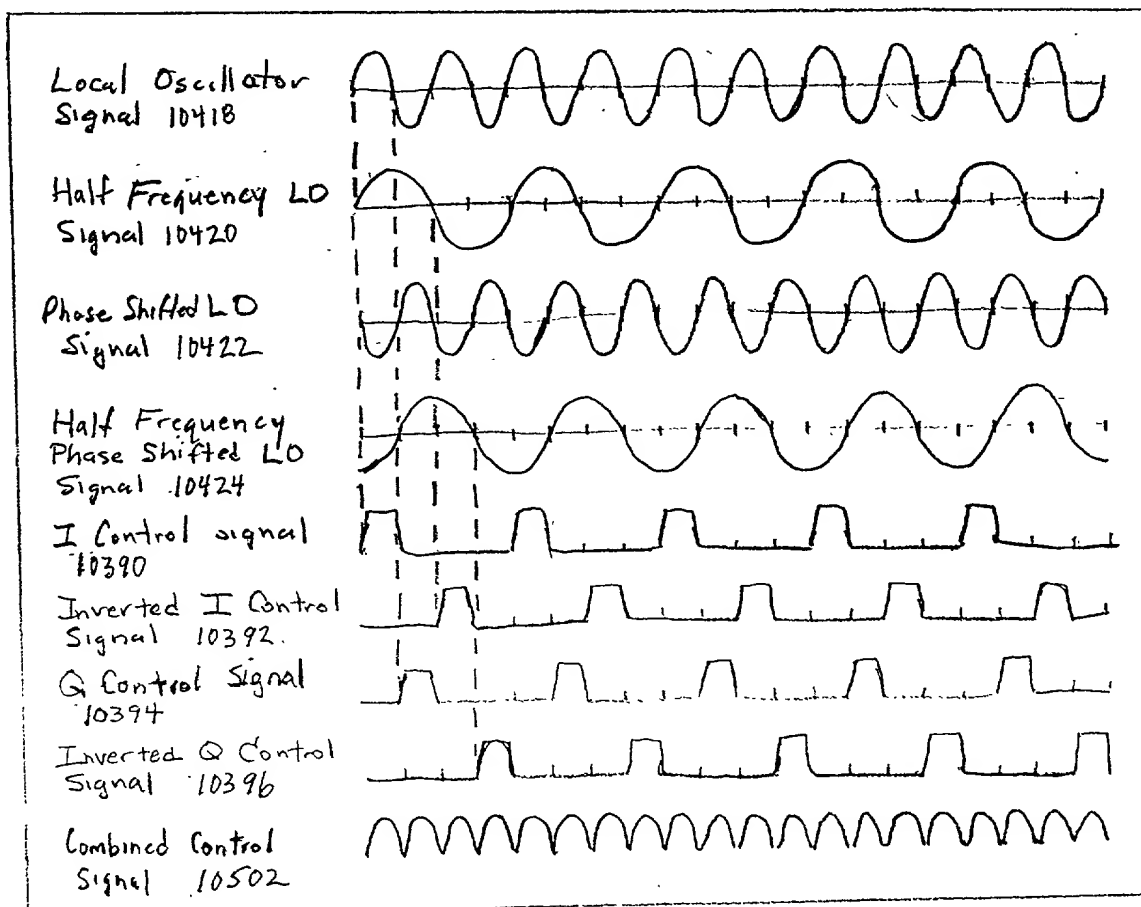 Local Oscillator
Signal 10418
Half Frequency LO
Signal 10420
Phase Shifted LO
Signal 10422
Half Frequency
Phase Shifted LO
Signal 10424
I Control signal
10390
Inverted I Control
Signal 10392.
Q Control Signal
10394
Inverted Q Control
Signal 10396
Combined Control
Signal 10502